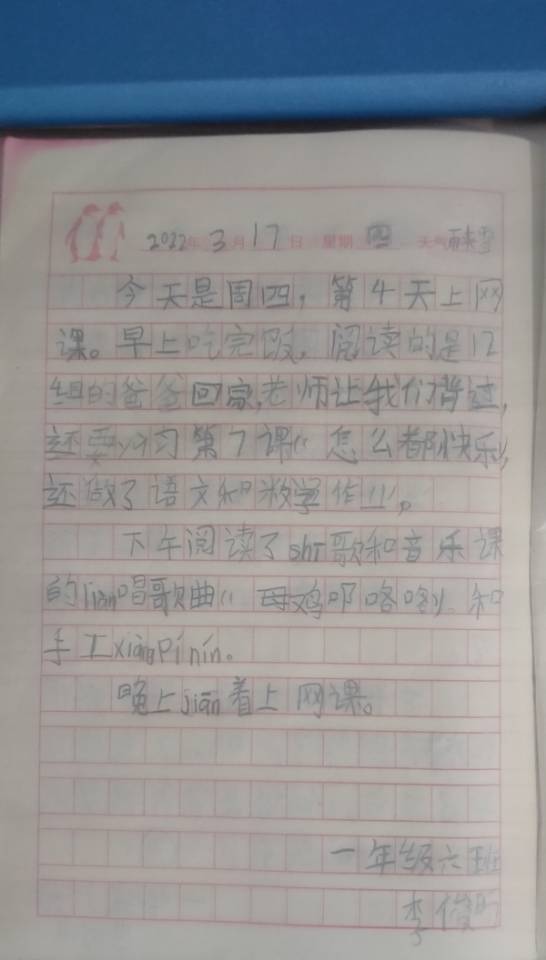 2022年3月17日 星期四 天气雨夹雪
今天是周四，第4天上网
课。早上吃完饭，阅读的是12
组的爸爸回家，老师让我们背过，
还要yù习第7课《怎么都快乐》，
还做了语文和数学作业。
下午阅读了shī歌和音乐课
的liàn唱歌曲《母鸡叫咯咯》。和
手工xiàngpínín。
晚上jiān着上网课。
一年级六班
李俊